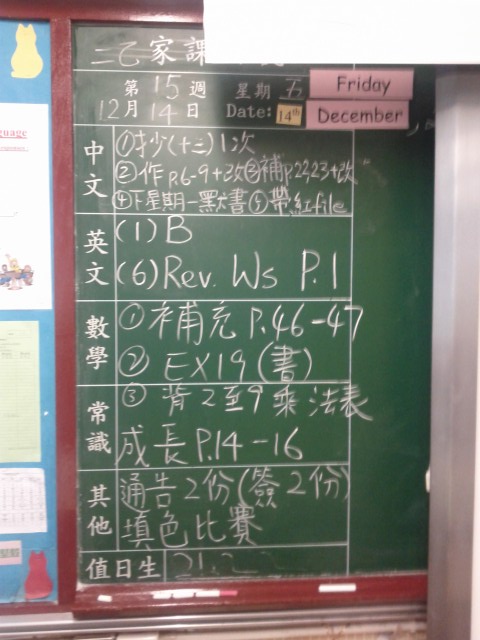 二乙家課
第15週 星期五 Friday
12月14日 Date: 14th December
中文
①抄(十二)1次
②作P.6-9+改③補P.22,23+改
④下星期一默書⑤帶紅file
英文
(1)B
(6)Rev. Ws P.1
數學
①補充P.46-47
②EX19(書)
③背2至9乘法表
常識
成長P.14-16
其他
通告2份(簽2份)
填色比賽
值日生
21,2